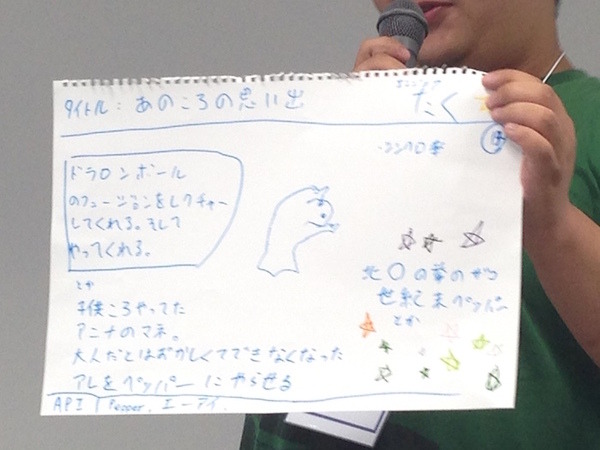 タイトル：あのころの思い出
エンジニア
たく
ドラ〇ンボール
のフュージョンをレクチャー
してくれる。そして
やってくれる。
とか
子供ころやってた
アニメのマネ。
大人だとはずかしくてできなくなった
アレをペッパーにやらせる
北〇の拳のザコ
世紀末ペッパー
とか
API | Pepper, エーアイ.